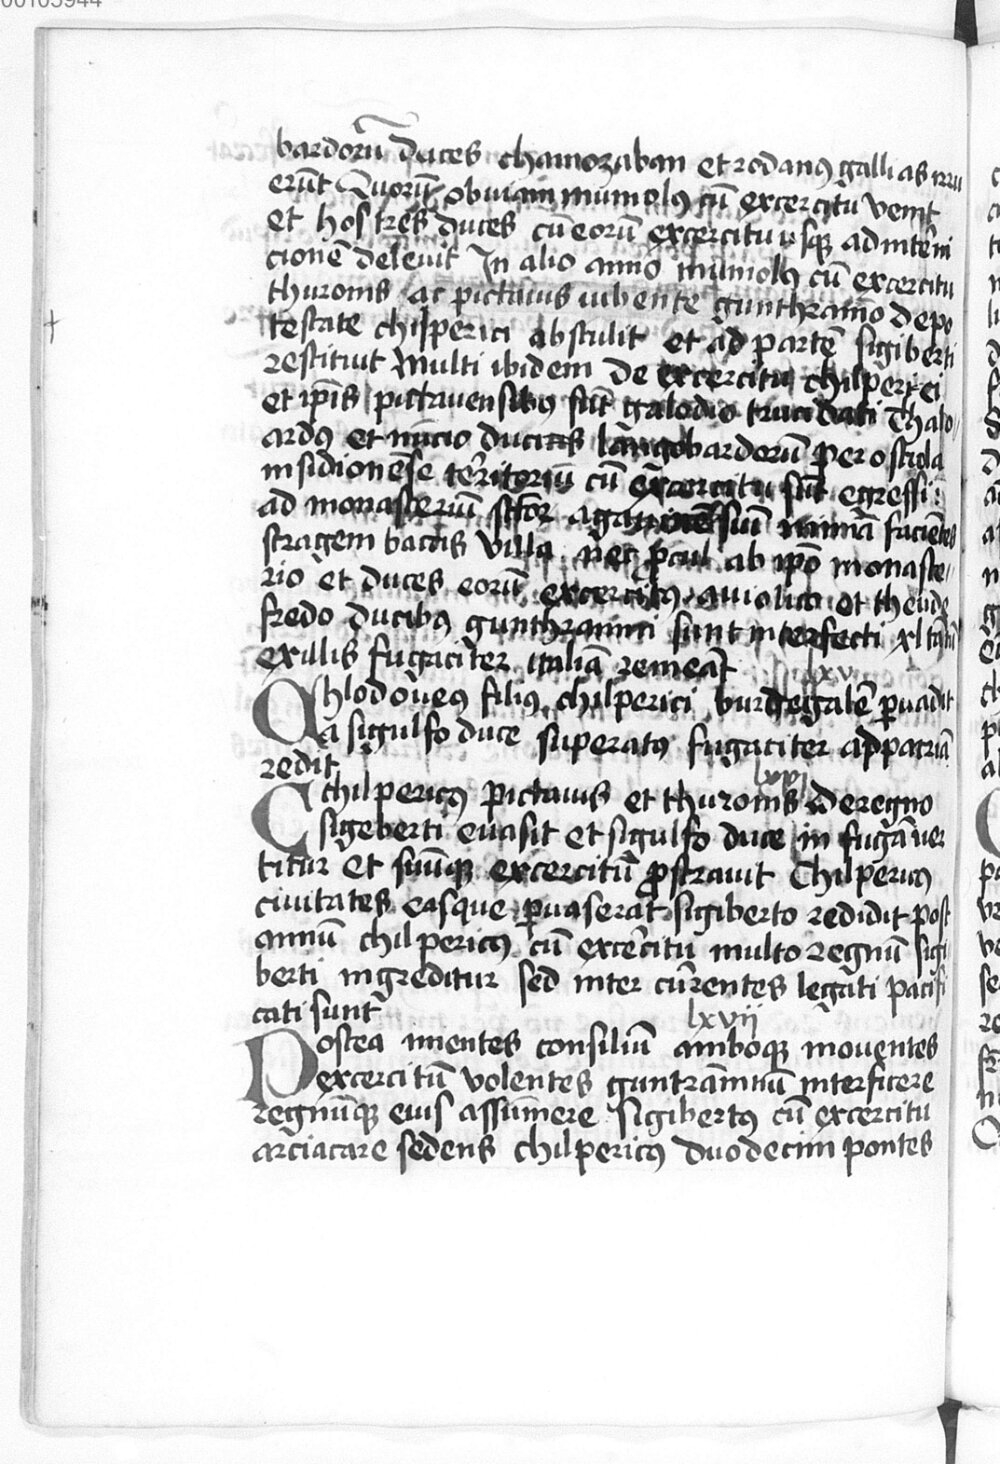 00103944
bardorū duces chamozaban et rodanꝰ gallias irru
erūt Quorū obviam mumolꝰ cū excercitu venit
et hos tres duces cū eorū excercitu usqꝫ ad intēni
cionē delevit In alio anno mumolꝰ cū excercitu
thuronis ac pictauis iubente gunthrāno de po
testate chilperici abstulit et ad partē sigiberti
restituit Multi ibidem de excercitu chilperici
et ip̄is pictauensibꝰ sūt galodio trucidati Thalo
ardꝰ et nūcio duces lāngobardorū per ostiola
in sidionēse territoriū cū excercitu sūt egressi
ad monasteriū sc̄for agaunēsiū nimiā faciētes
stragem baccis villa nec ꝓcul ab ip̄o monaste
rio et duces eorū excercitꝰ auiolico et theude
fredo ducibꝰ gunthramni sunt interfecti xl tātū
ex illis fugaciter italiā remeāt
lxv
Chlodoueus filiꝰ chilperici burdegalē ꝑuadit
a sigulfo duce superatꝰ fugaciter ad patriā
redit
lxvi
Chilpericꝰ pictauis et thuronis de regno
sigeberti euasit et sigulfo duce in fugā ver
titur et suūqꝫ excercitū ꝓstrauit Chilpericꝰ
ciuitates easque ꝑuaserat sigiberto redidit post
annū chilpericꝰ cū excercitu multo regnū sigi
berti ingreditur sed inter currentes legāti pacifi
cati sunt
lxvii
Postea inientes consiliū amboqꝫ mouentes
excercitū volentes guntrāmnū interficere
regnūqꝫ eius assūmere sigibertꝰ cū excercitu
arciacare sedens chilpericꝰ duodecim pontes